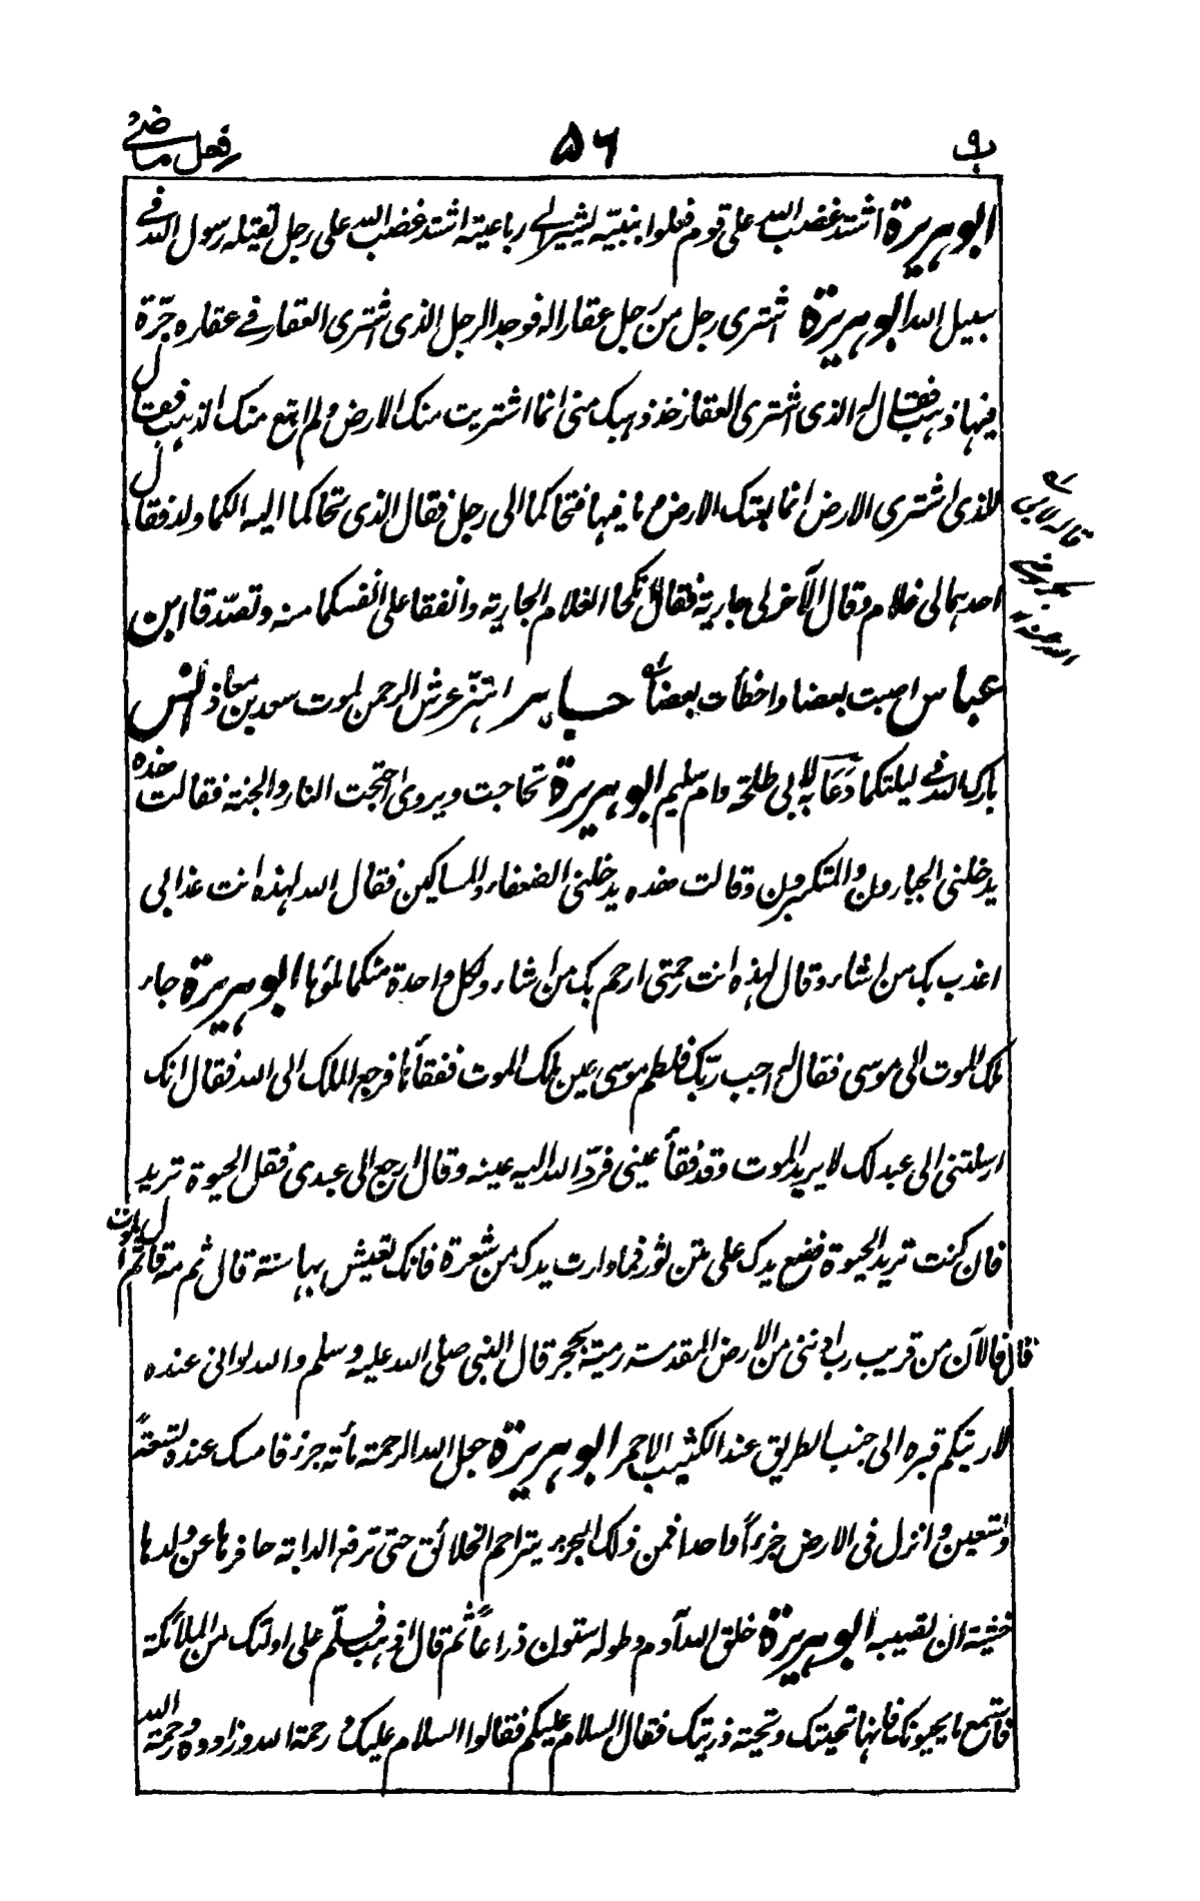 ب٩ ۵۶ فعل ماضی
ابو هریرة اشتد غضب الله علی قوم فعلوا بنبیه یشیر الی رباعیته اشتد غضب الله علی رجل یقتله رسول الله فی
سبیل الله ابو هریرة اشتری رجل من رجل عقارا له فوجد الرجل الذی اشتری العقار فی عقاره جرّة
فیها ذهب فقال له الذی اشتری العقار خذ ذهبک منی انما اشتریت منک الارض ولم ابتع منک الذهب فقال
للذی اشتری الارض انما بعتک الارض وما فیها فتحاکما الی رجل فقال الذی تحاکما الیه الکما ولد فقال
احدهما لی غلام وقال الآخر لی جاریة فقال انکحا الغلام الجاریة وانفقا علی انفسکما منه وتصدّقا ابن
عباس اصبت بعضا واخطأت بعضا جابر اهتزّ عرش الرحمن لموت سعد بن معاذ انس
بارک الله فی لیلتکما دَعَا به لابی طلحة وام سلیم ابو هریرة تحاجت ویروی احتجت النار والجنة فقالت هذه
یدخلنی الجبارون والمتکبرون وقالت هذه یدخلنی الضعفاء والمساکین فقال الله لهذه انت عذابی
اعذب بک من اشاء وقال لهذه انت رحمتی ارحم بک من اشاء ولکل واحدة منکما ملؤها ابو هریرة جاء
ملک الموت الی موسی فقال له اجب ربّک فلطم موسی عین ملک الموت ففقأها فرجع الملک الی الله فقال انک
ارسلتنی الی عبد لک لا یرید الموت وقد فقأ عینی فردّ الله الیه عینه وقال ارجع الی عبدی فقل الحیوة ترید
فان کنت ترید الحیوة فضع یدک علی متن ثور فما وارت یدک من شعرة فانک تعیش بها سنة قال ثم مه قال ثم الموت
قال فالآن من قریب رب ادننی من الارض المقدسة رمیة بحجر قال النبی صلی الله علیه وسلم والله لو انی عنده
لاریتکم قبره الی جنب الطریق عند الکثیب الاحمر ابو هریرة جعل الله الرحمة مأة جزء فامسک عنده تسعةً
وتسعین وانزل فی الارض جزءًا واحدا فمن ذلک الجزء یتراحم الخلائق حتی ترفع الدابة حافرها عن ولدها
خشیة ان تصیبه ابو هریرة خلق الله آدم وطوله ستون ذراعاً ثم قال اذهب فسلّم علی اولئک من الملائکة
فاستمع ما یحیونک فانها تحیتک وتحیة ذریتک فقال السلام علیکم فقالوا السلام علیک ورحمة الله وزادوه ورحمة الله
قاله لابی
بکر رضی
الله عنه